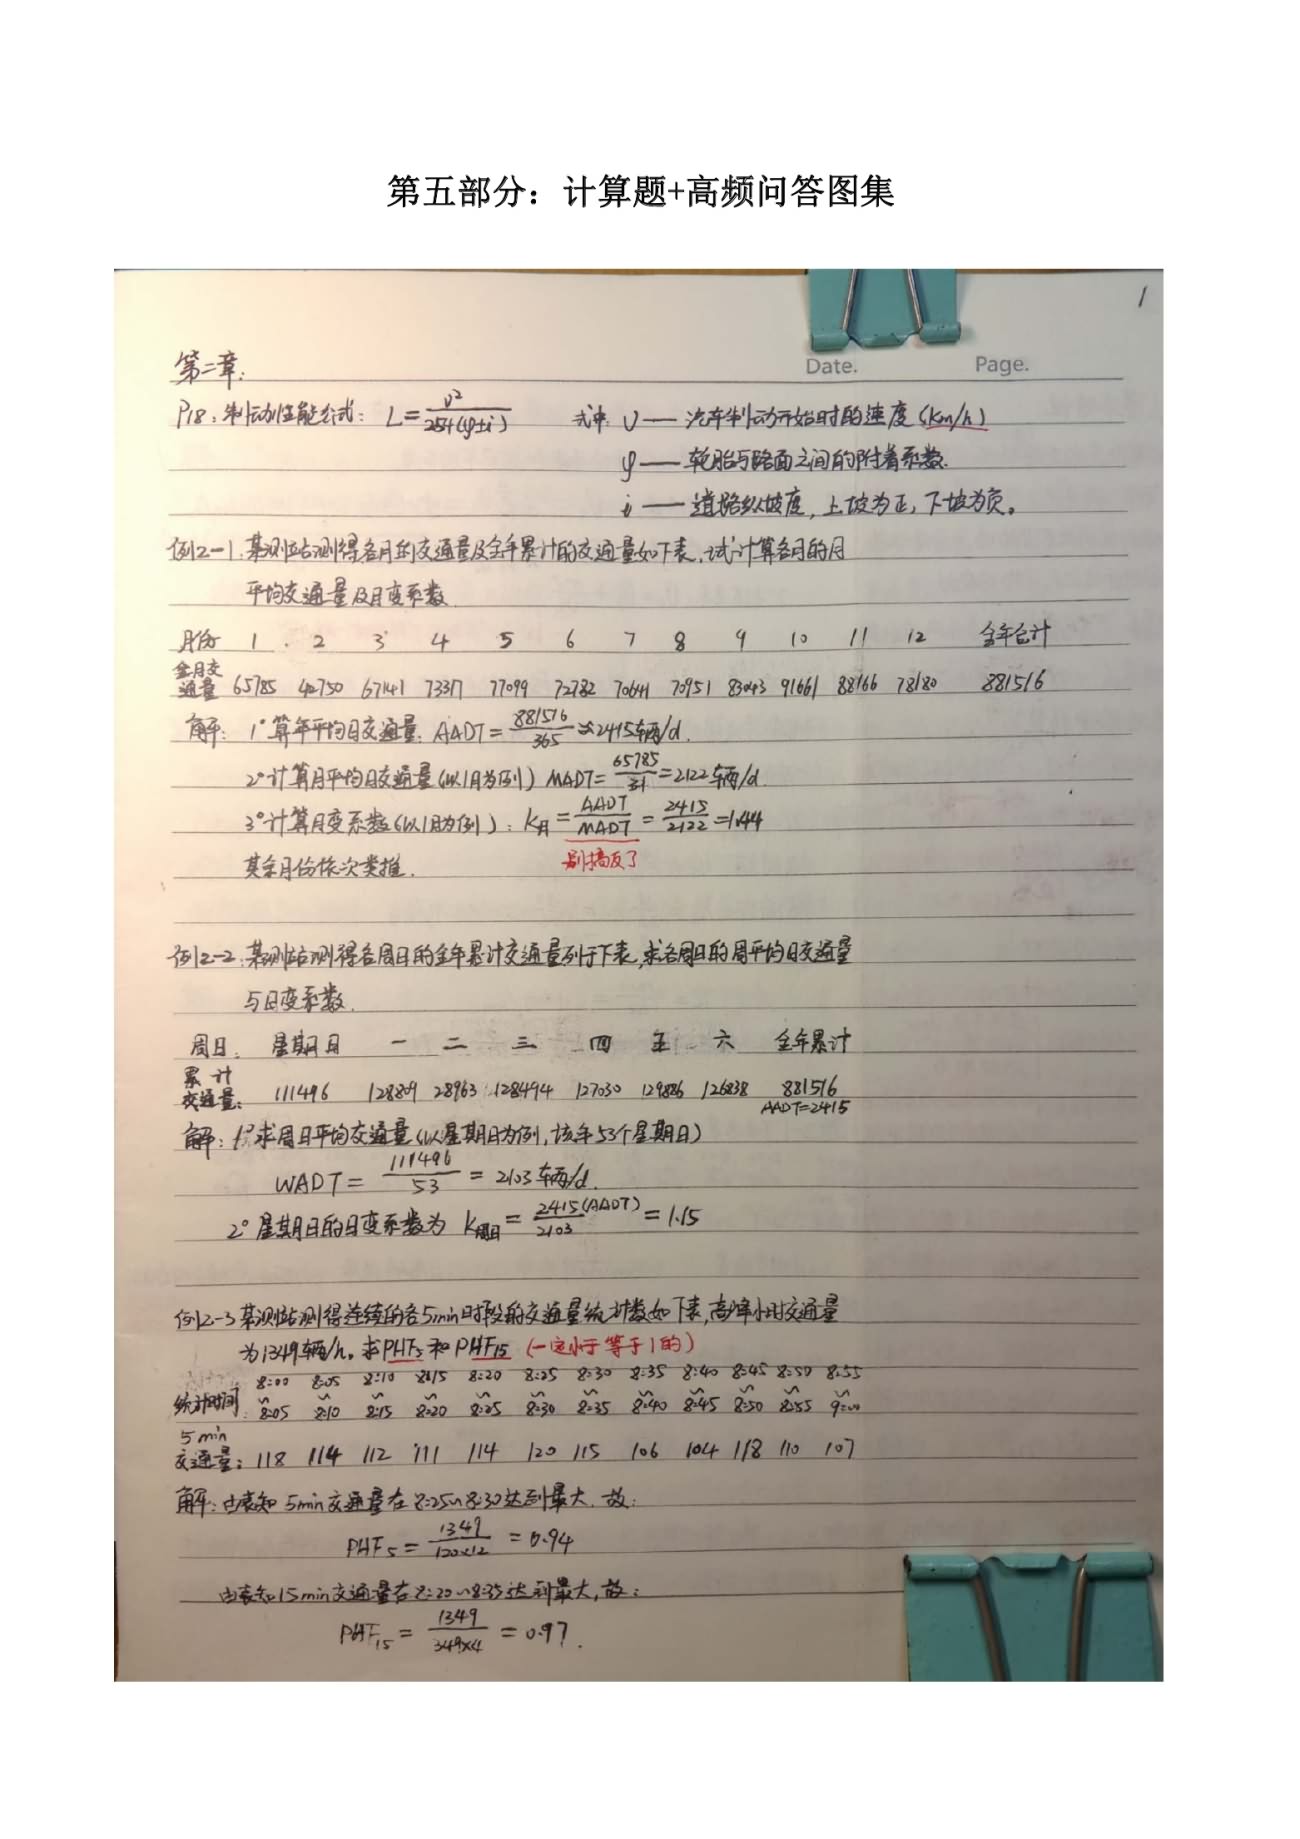 第五部分：计算题+高频问答图集
1
Date. Page.
第二章：
P18：制动性能公式： L=v²/254(φ±i) 式中 v—— 汽车制动开始时的速度（km/h）
φ—— 轮胎与路面之间的附着系数.
i—— 道路纵坡度，上坡为正，下坡为负。
例2-1.某测站测得各月的交通量及全年累计的交通量如下表，试计算各月的月
平均交通量及月变系数.
月份 1 2 3 4 5 6 7 8 9 10 11 12 全年合计
全月交通量 65785 42750 67141 73317 77099 72782 70641 70951 83043 91661 88166 78180 881516
解： 1°算年平均日交通量：AADT=881516/365≈2415辆/d.
2°计算月平均日交通量（以1月为例）MADT=65785/31=2122辆/d.
3°计算月变系数（以1月为例）：K月=AADT/MADT=2415/2122=1.144
别搞反了
其余月份依次类推.
例2-2.某测站测得各周日的全年累计交通量列于下表,求各周日的周平均日交通量
与日变系数.
周日： 星期日 一 二 三 四 五 六 全年累计
累计交通量： 111496 128809 28963 128494 127030 129886 126838 881516
AADT=2415
解：1°求周日平均交通量（以星期日为例，该年53个星期日）
WADT=111496/53=2103辆/d.
2°星期日的日变系数为 K周日=2415(AADT)/2103=1.15
例2-3 某测站测得连续的各5min时段的交通量统计数如下表,高峰小时交通量
为1349辆/h。求PHF5和PHF15（一定小于等于1的）
8:00 8:05 8:10 8:15 8:20 8:25 8:30 8:35 8:40 8:45 8:50 8:55
统计时间： ~ ~ ~ ~ ~ ~ ~ ~ ~ ~ ~ ~
8:05 8:10 8:15 8:20 8:25 8:30 8:35 8:40 8:45 8:50 8:55 9:00
5min交通量： 118 114 112 111 114 120 115 106 104 118 110 107
解：由表知 5min交通量在8:25~8:30达到最大. 故：
PHF5=1349/120×12=0.94
由表知15min交通量在8:20~8:35达到最大，故：
PHF15=1349/349×4=0.97.